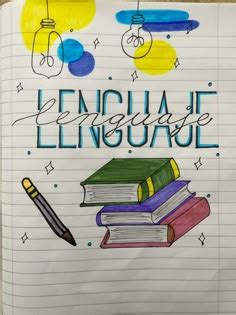 LENGUAJE
lenguaje